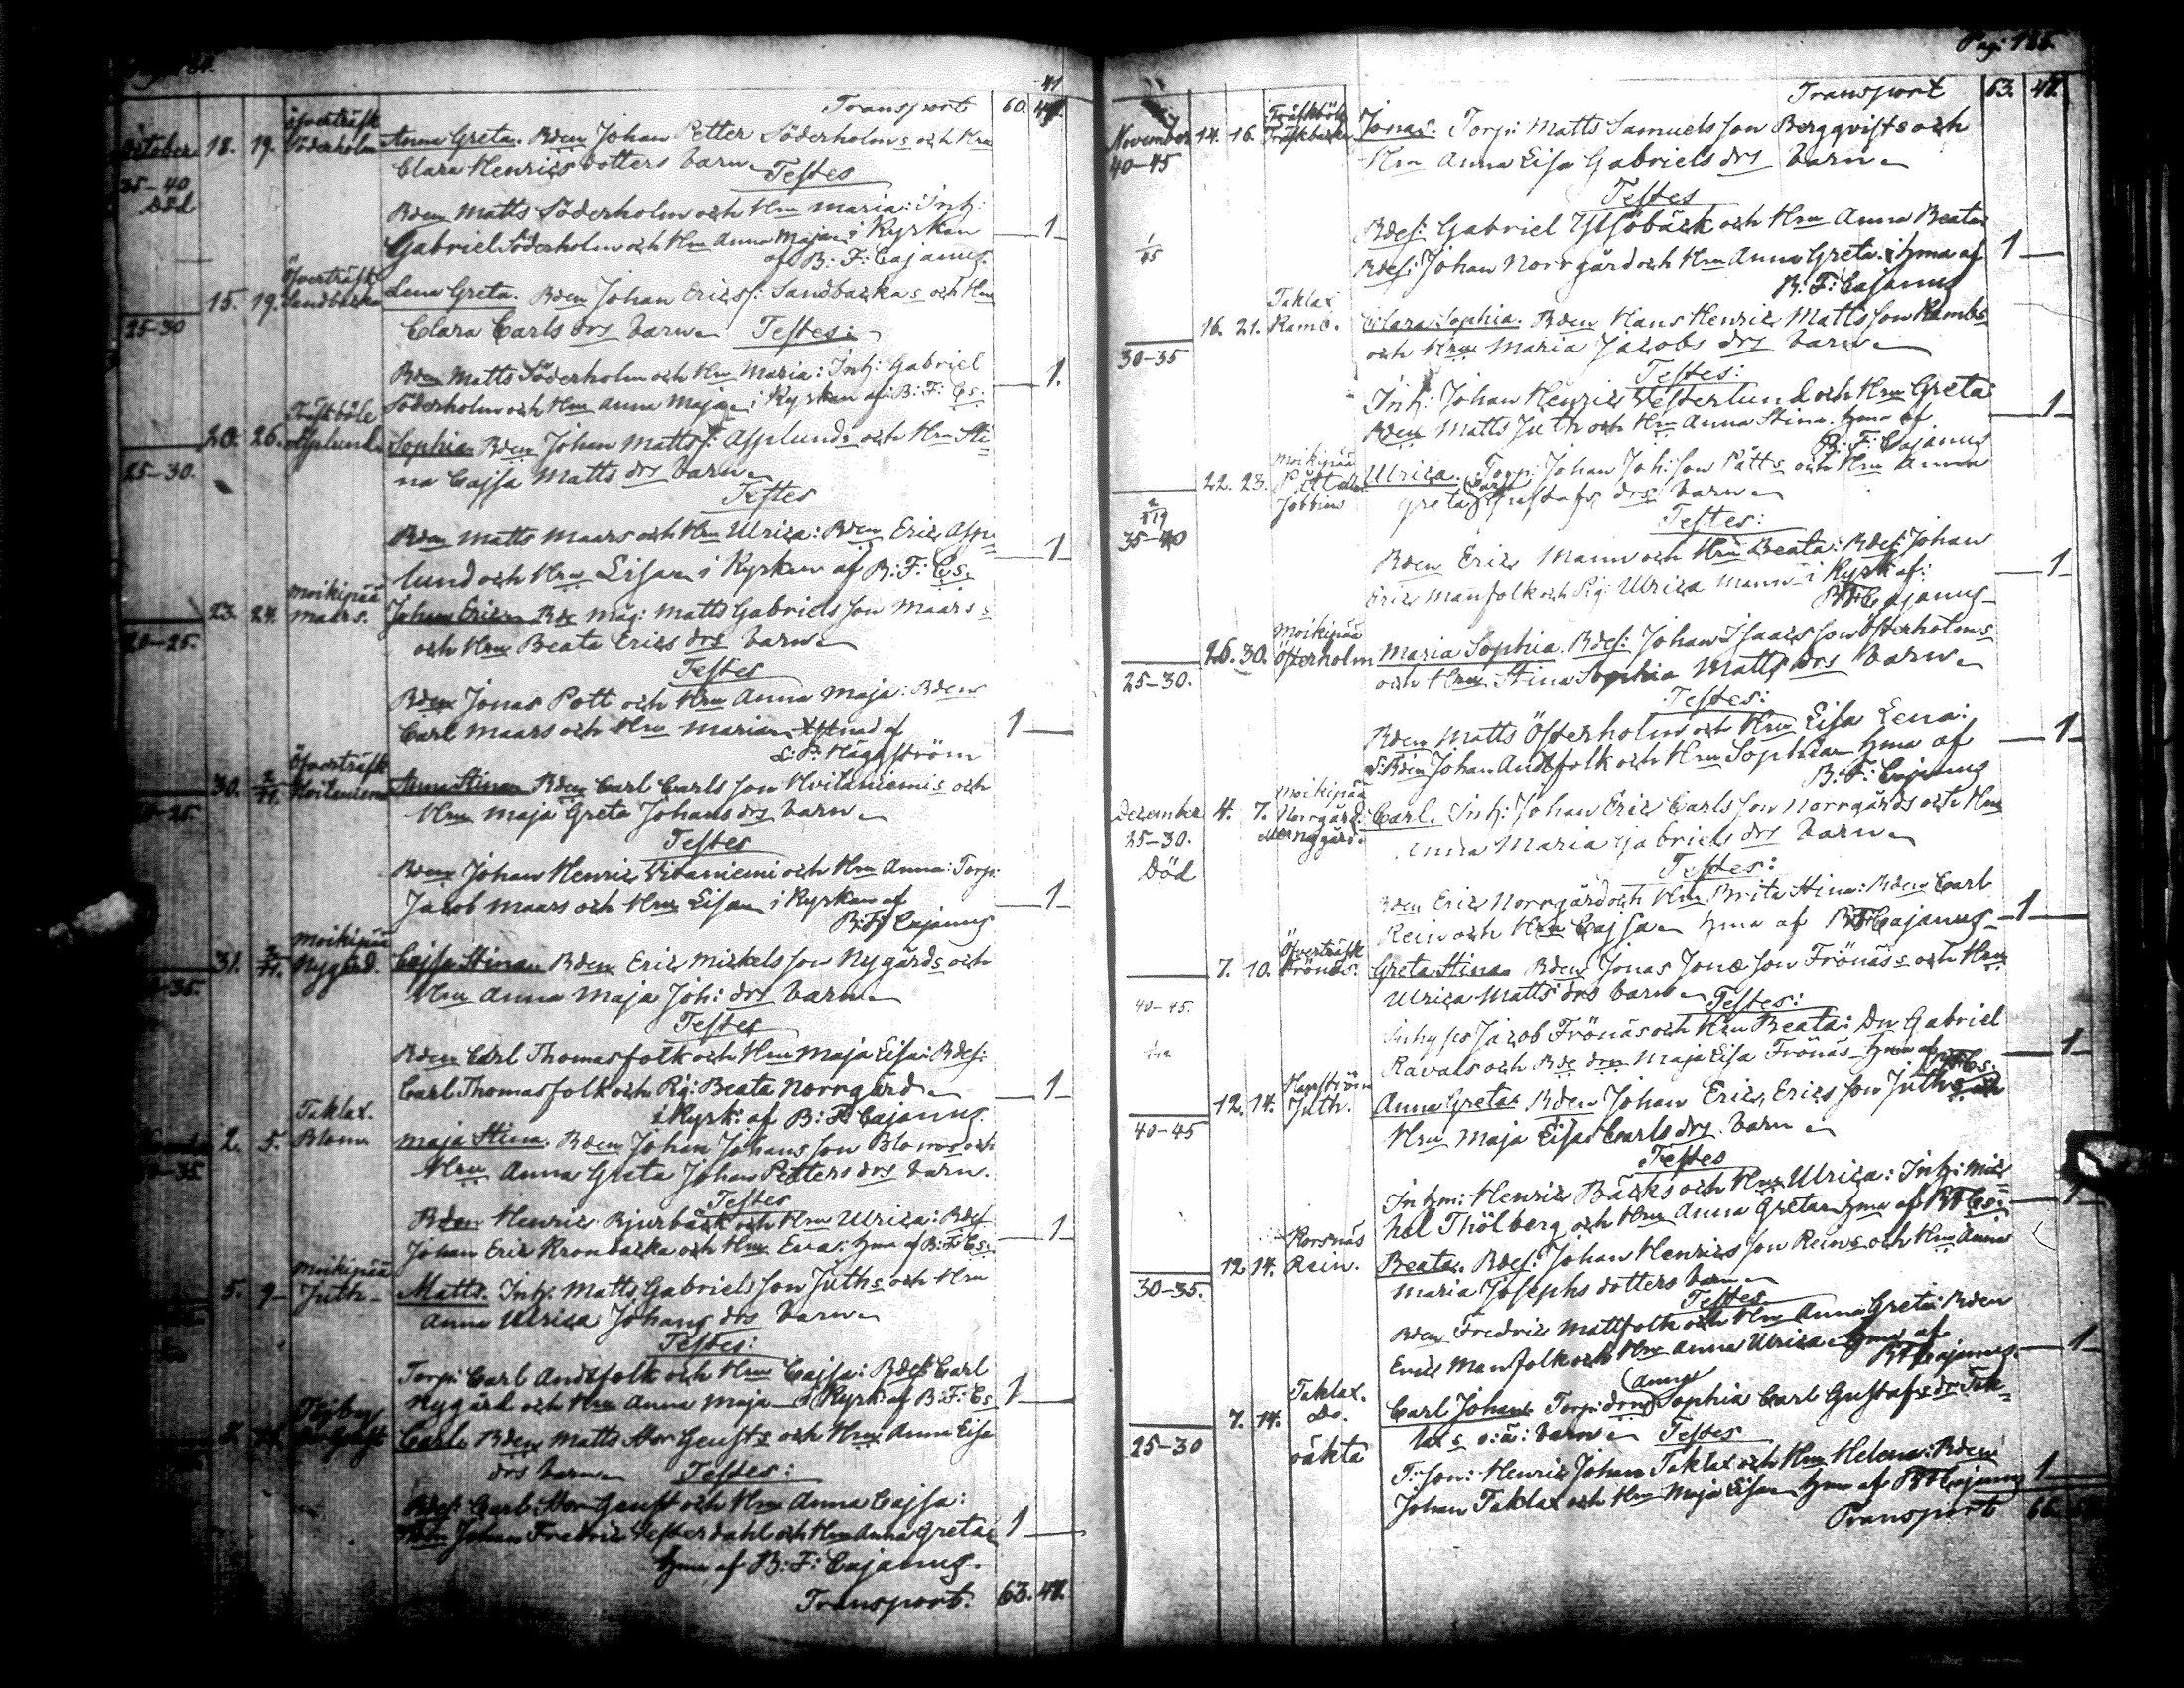 41
Transport 60. 47.
October 18. 19. Öfverträsk Söderholm Anna Greta. Bden Johan Petter Söderholms och Hru
35-40 Clara Henrics dotters barn
Död Testes
Bden Matts Söderholm och Hru Maria: Inh:
Gabriel Söderholm och Hru Anna Maja i Kyrkan 1
af B: F: Cajanus
15. 19. Öfverträsk Sandbacka Lena Greta. Bden Johan Ericss: Sandbackas och Hru
25-30 Clara Carls drs barn Testes:
Bden Matts Söderholm och Hru Maria: Inh: Gabriel
Söderholm och Hru Anna Maja i Kyrkan af B: F: Cs: 1.
20. 26. Träskböle Asplund Sophia Bden Johan Mattss: Asplunds och Hru Sti
25-30. na Cajsa Matts drs barn
Testes
Bden Matts Maars och Hru Ulrica: Bden Eric Asp
lund och Hru Lisa i Kyrkan af B: F: Cs. 1
23. 24. Moikipää Maars. Johan Eric Bde måg: Matts Gabriels son Maars
20-25. och Hru Beata Erics drs barn
Testes
Bden Jonas Pott och Hru Anna Maja: Bden
Carl Maars och Hru Maria af 1
Häggström
30. Öfverträsk Anna Stina Bden Carl Carls son Hvitaniemis och
Hru Maja Greta Johans drs barn
Testes
Bden Johan Henric Vitaniemi och Hru Anna: Torp:
Jacob Maars och Hru Lisa i Kyrkan af 1
B: F: Cajanus
31. Moikipää Nygård. Cajsa Stina Bden Eric Mickels son Nygårds och
Hru Anna Maja Joh: drs barn
Testes
Bden Carl Thomasfolk och Hru Maja Lisa: Bdes:
Carl Thomasfolk och Pig: Beata Norrgård 1
i Kyrk: af B: F: Cajanus.
2. 5. Taklax. Blom Maja Stina. Bden Johan Johans son Bloms och
Hru Anna Greta Johan Petters drs barn.
Testes
Bden Henric Bjurbäck och Hru Ulrica: Bdes
Johan Eric Kronbacka och Hru Eva: hma af B: F: Cs: 1
5. 9 Moikipää Juth Matts. Inh: Matts Gabriels son Juths och Hru
Anna Ulrica Johans drs barn
Testes:
Torp: Carl Andsfolk och Hru Cajsa: Bdes Carl
Nygård och Hru Anna Maja i Kyrk: af B: F: Cs 1
Carl Bden Matts och Hru Anna Lisa
drs barn Testes:
Bdes: Carl och Hru Anna Cajsa:
Johan Fredric Vesterdahl och Hru Anna Greta 1
hma af B: F: Cajanus.
Transport. 63. 47.
Pag: 185.
Transport 63. 47.
November 14. 16. Träskböle Träskbacka Jonas. Torp: Matts Samuels son Bergqvists och
40-45 Hru Anna Lisa Gabriels drs barn
Testes
Bdes: Gabriel och Hru Anna Beata
Bdes: Johan Norrgård och Hru Anna Greta. hma af 1
B: F: Cajanus
16. 21. Taklax Ramb. Clara Sophia. Bden Hans Henric Matts son Rambs
30-35 och Hru Maria Jacobs drs barn
Testes:
Inh: Johan Henric Vesterlund och Hru Greta
Bden Matts Juth och Hru Anna Stina. hma af 1
B: F: Cajanus
22. 23. Moikipää Ulrica. Torp: Johan Joh: son Pätts och Hru Anna
Greta Gustafs drs barn
Testes:
35-40 Bden Eric Mann och Hru Beata: Bdes: Johan
Eric Manfolk och Pig: Ulrica Mann i Kyrk af: 1
B: F: Cajanus
26. 30. Moikipää Österholm Maria Sophia. Bdes: Johan Isaacs son Österholms
25-30. och Hru Stina Sophia Matts drs barn
Testes:
Bden Matts Österholm och Hru Lisa Lena:
Johan Andsfolk och Hru Sophia hma af 1
B: F: Cajanus
December 4. 7. Moikipää Norrgård: Carl. Inh: Johan Eric Carls son Norrgårds och Hru
25-30. Anna Maria Gabriels drs barn
Död Testes:
Bden Eric Norrgård och Hru Brita Stina: Bden Carl
Rein och Hru Cajsa hma af B: F: Cajanus 1
7. 10. Öfverträsk Frönäs. Greta Stina Bden Jonas Jonæ son Frönäs och Hru
40-45. Ulrica Matts drs barn Testes:
Jacob Frönäs och Hru Beata: Dn Gabriel
Ravals och Bde Maja Lisa Frönäs hma af 1
12. 14. Harström Juth. Anna Greta Bden Johan Eric Erics son Juths och
40-45 Hru Maja Lisa Carls drs barn
Testes
Inhm: Henric Bäcks och Hru Ulrica: Inh: Mic
hel Thölberg och Hru Anna Greta hma af B: F: Cs: 1
12 14. Korsnäs Rein. Beata. Bdes: Johan Henrics son Reins och Hru Anna
30-35. Maria Josephs dotters barn
Testes
Bden Fredric Mattfolk och Hru Anna Greta Bden
Eric Manfolk och Hru Anna Ulrica hma af 1
B: F: Cajanus.
7. 14. Taklax. Do. Carl Johan Torp: Anna Sophia Carl Gustafs dr Tak-
25-30 oäkta lax s o: ä: barn Testes
T: son: Henric Johan Taklax och Hru Helena: Bden
Johan Taklax och Hru Maja Lisa hma af B: F: Cajanus 1
Transport 66.